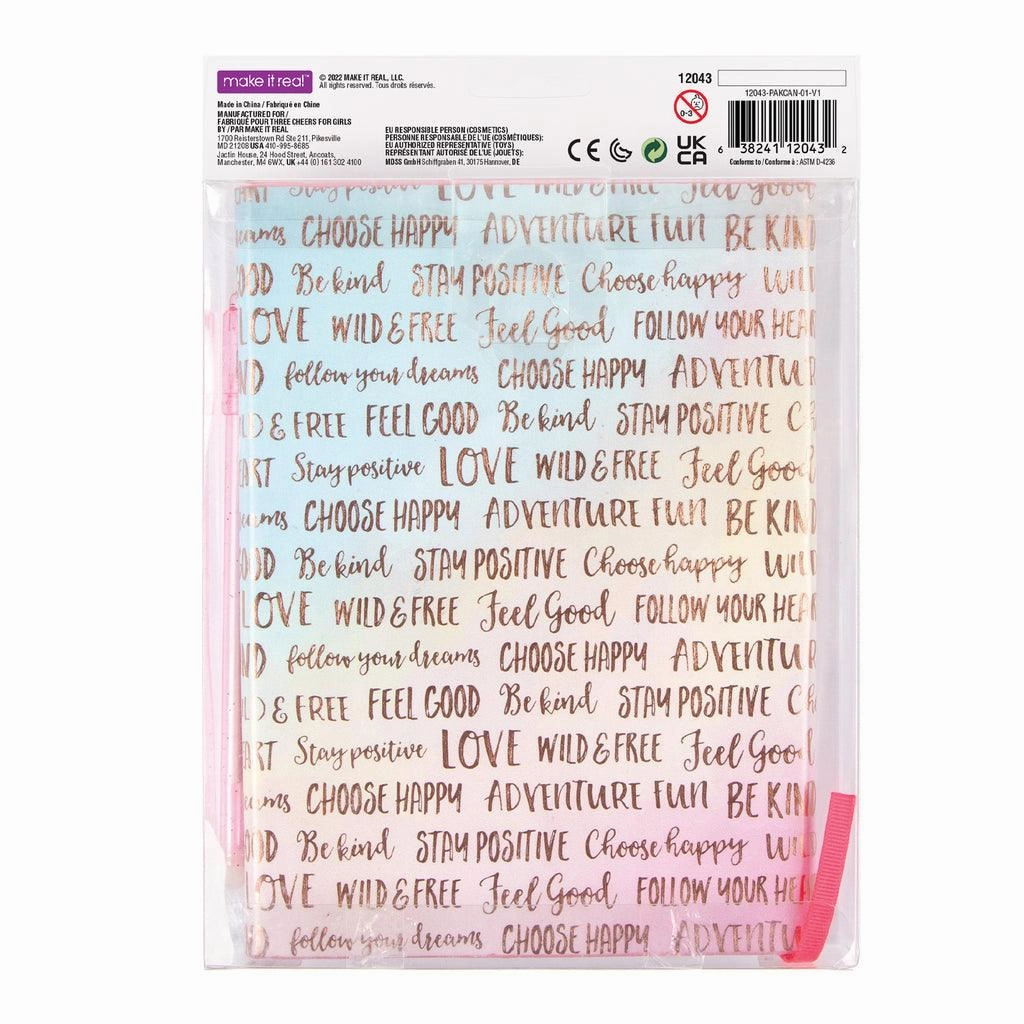 make it real™
© 2022 MAKE IT REAL, LLC.
All rights reserved. Tous droits réservés.
Made in China / Fabriqué en Chine
MANUFACTURED FOR /
FABRIQUÉ POUR THREE CHEERS FOR GIRLS
BY / PAR MAKE IT REAL
1700 Reisterstown Rd Ste 211, Pikesville
MD 21208 USA 410-995-8685
Jactin House, 24 Hood Street, Ancoats,
Manchester, M4 6WX, UK +44 (0) 161 302 4100
EU RESPONSIBLE PERSON (COSMETICS)
PERSONNE RESPONSABLE DE L'UE (COSMÉTIQUES):
EU AUTHORIZED REPRESENTATIVE (TOYS)
REPRÉSENTANT AUTORISÉ DE L'UE (JOUETS):
MDSS GmbH Schiffgraben 41, 30175 Hannover, DE
CE
0-3
UK
CA
12043
12043-PAKCAN-01-V1
6 38241 12043 2
Conforms to / Conforme à : ASTM D-4236
ART Stay positive LOVE WILD & FREE Feel Good
eams CHOOSE HAPPY ADVENTURE FUN BE KIN
OOD Be kind STAY POSITIVE Choose happy WIL
LOVE WILD & FREE Feel Good FOLLOW YOUR HEA
ND follow your dreams CHOOSE HAPPY ADVENTUR
LD & FREE FEEL GOOD Be kind STAY POSITIVE C
ART Stay positive LOVE WILD & FREE Feel Good
eams CHOOSE HAPPY ADVENTURE FUN BE KIN
OOD Be kind STAY POSITIVE Choose happy WIL
LOVE WILD & FREE Feel Good FOLLOW YOUR HEA
ND follow your dreams CHOOSE HAPPY ADVENTUR
LD & FREE FEEL GOOD Be kind STAY POSITIVE Ch
ART Stay positive LOVE WILD & FREE Feel Good
eams CHOOSE HAPPY ADVENTURE FUN BE KIN
OOD Be kind STAY POSITIVE Choose happy WIL
LOVE WILD & FREE Feel Good FOLLOW YOUR HEA
ND follow your dreams CHOOSE HAPPY ADVENTU